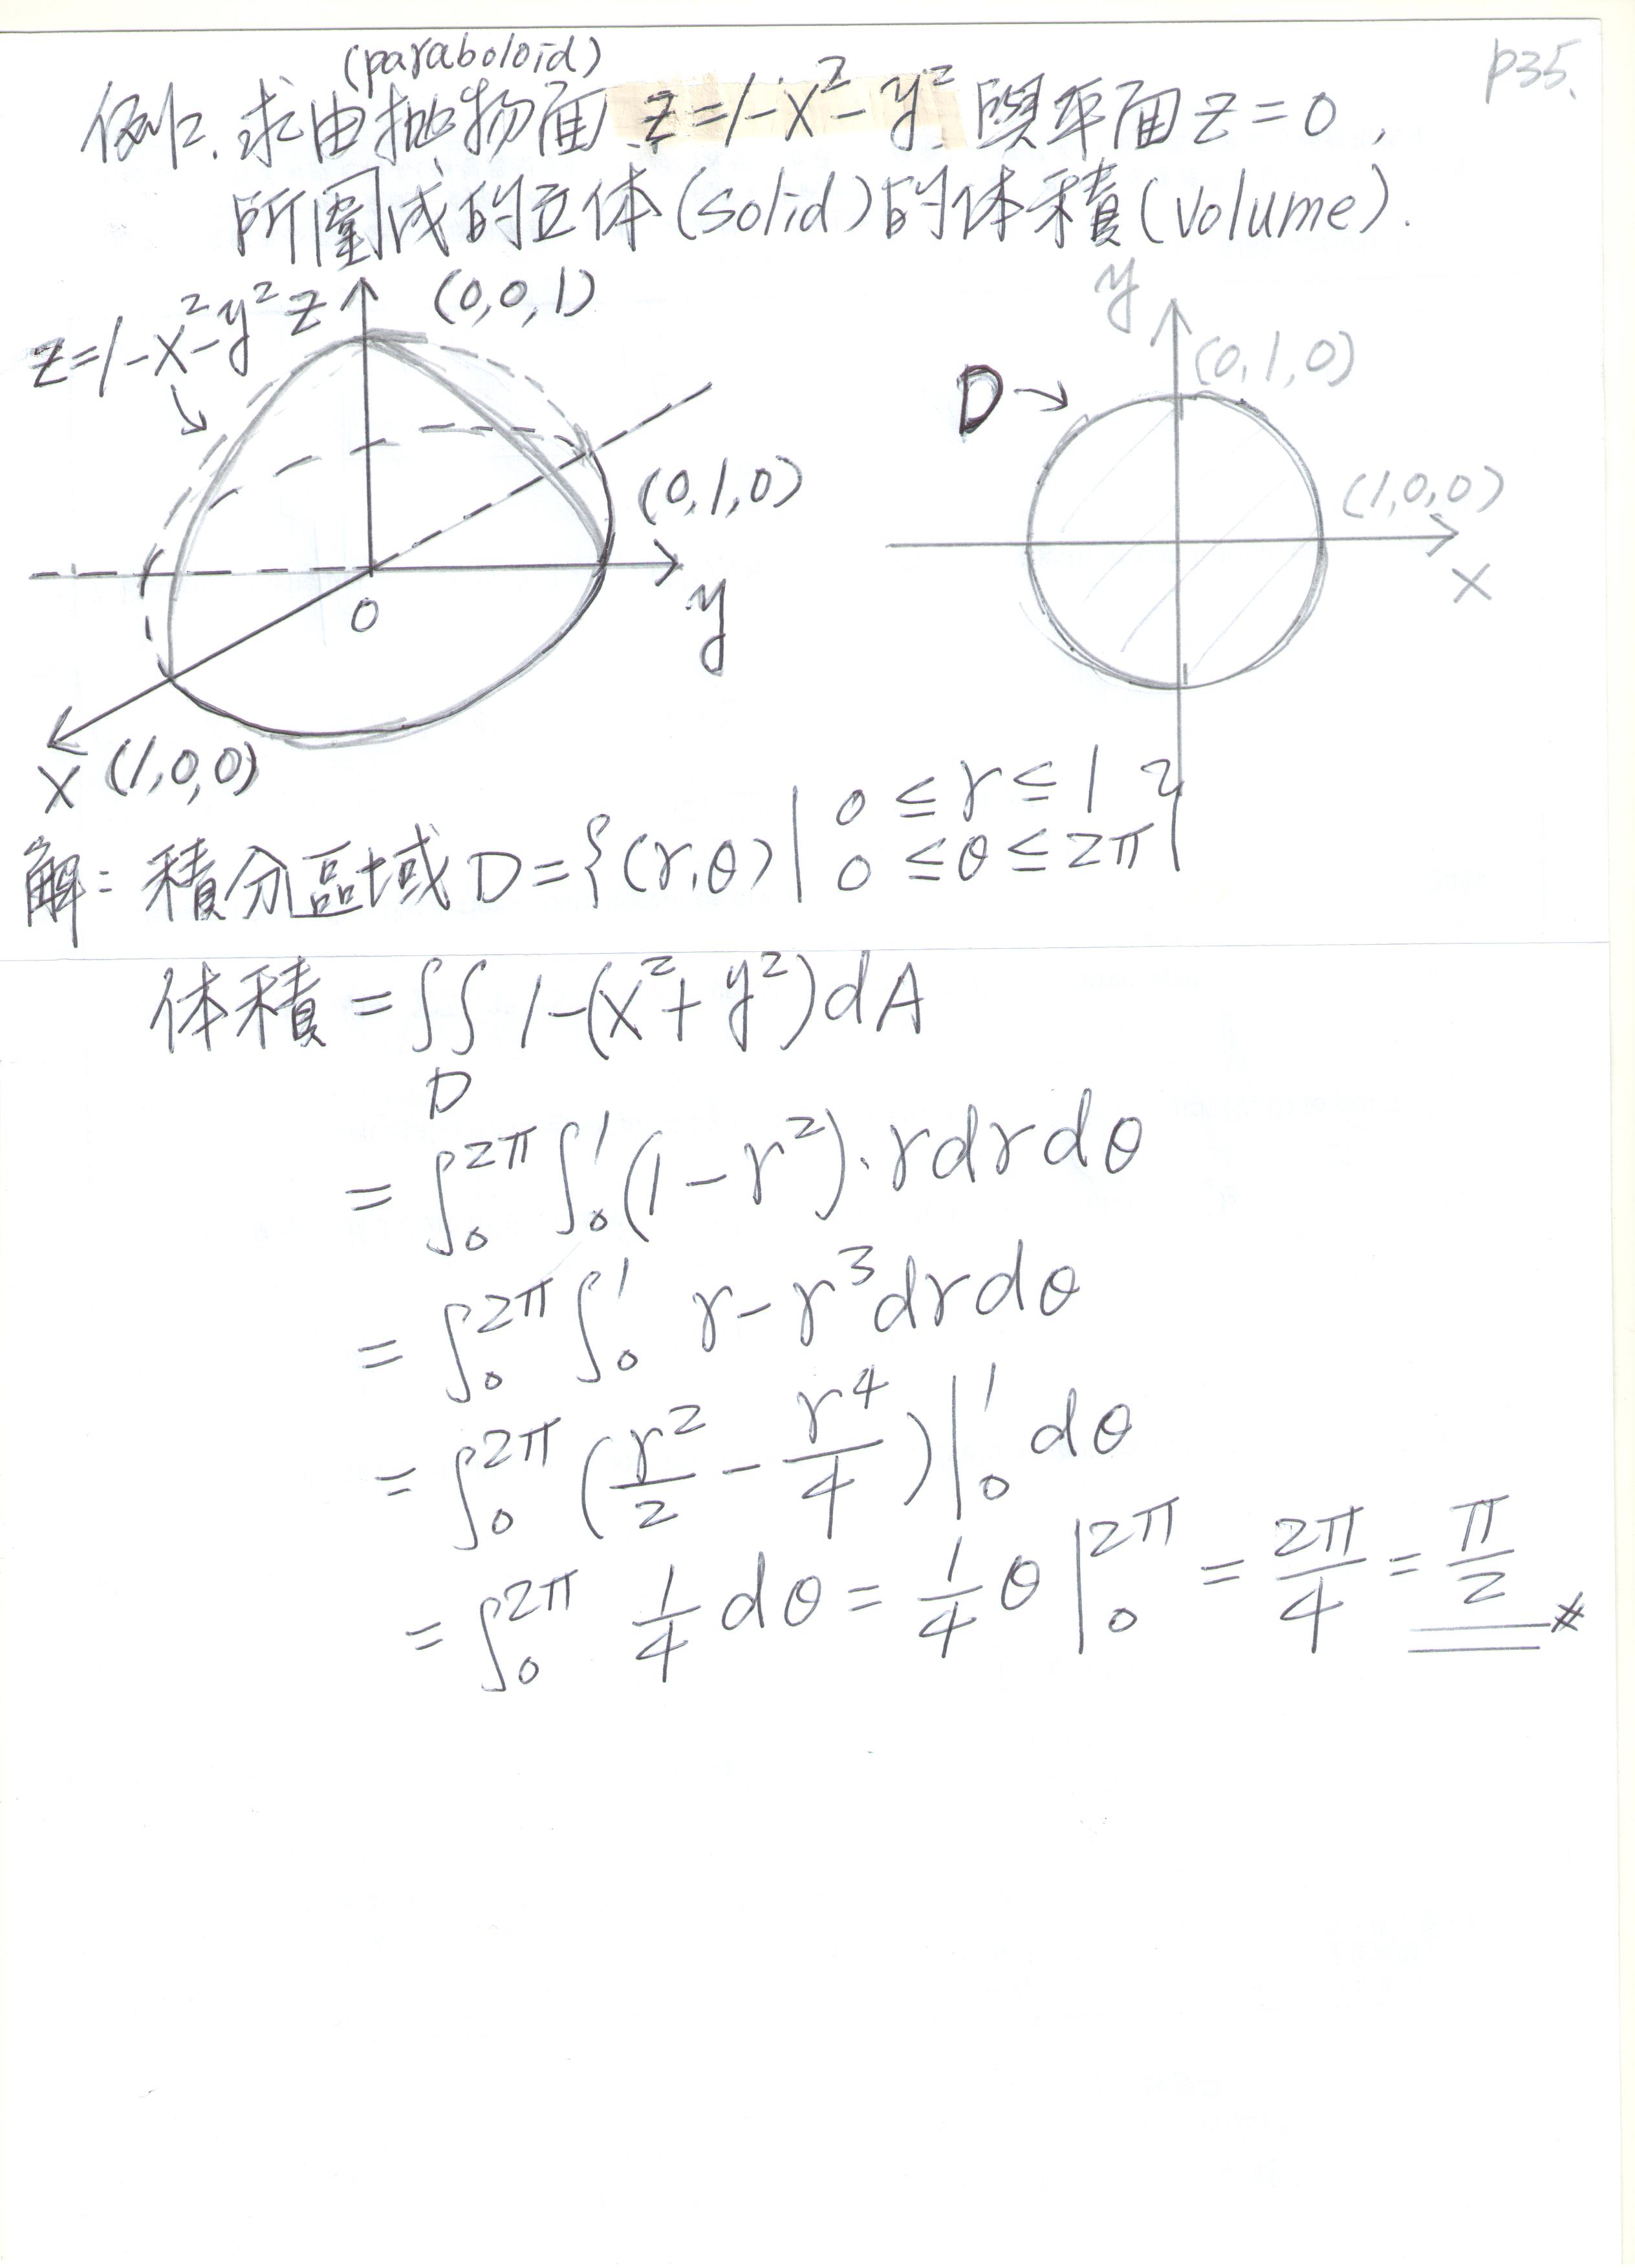 p35.
(paraboloid)
例2. 求由拋物面 z=1-x²-y² 與平面 z=0,
所圍成的立体(solid)的体積(volume).
z=1-x²-y²
z
(0,0,1)
(0,1,0)
y
0
x (1,0,0)
y
(0,1,0)
D→
(1,0,0)
x
解: 積分區域 D={(r,θ)| 0≤r≤1
0≤θ≤2π}
体積 = ∬_D 1-(x²+y²)dA
= ∫₀^2π ∫₀^1 (1-r²)·r dr dθ
= ∫₀^2π ∫₀^1 r-r³ dr dθ
= ∫₀^2π (r²/2 - r⁴/4)|₀^1 dθ
= ∫₀^2π 1/4 dθ = 1/4 θ|₀^2π = 2π/4 = π/2 #